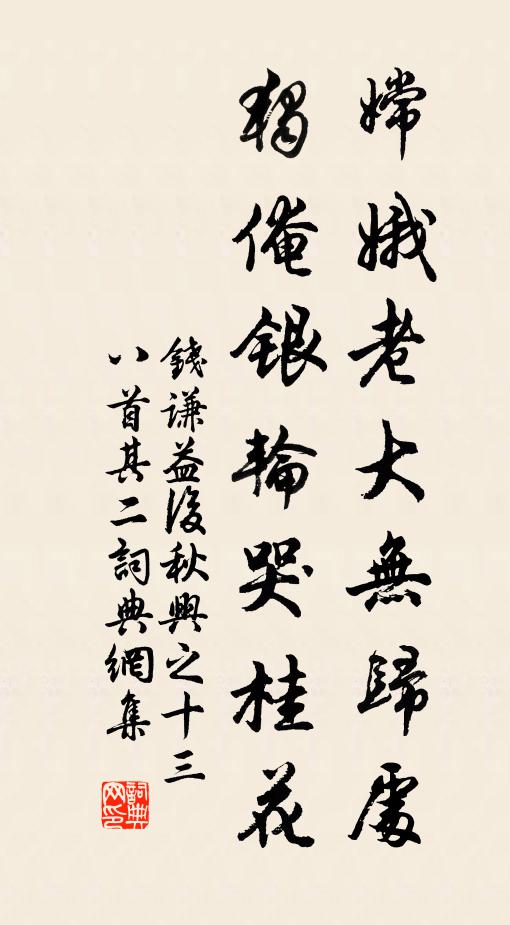 嫦娥老大無歸處
獨俺銀輪哭桂花
錢謙益後秋興之十三
八首其二詞典網集
詞典网印